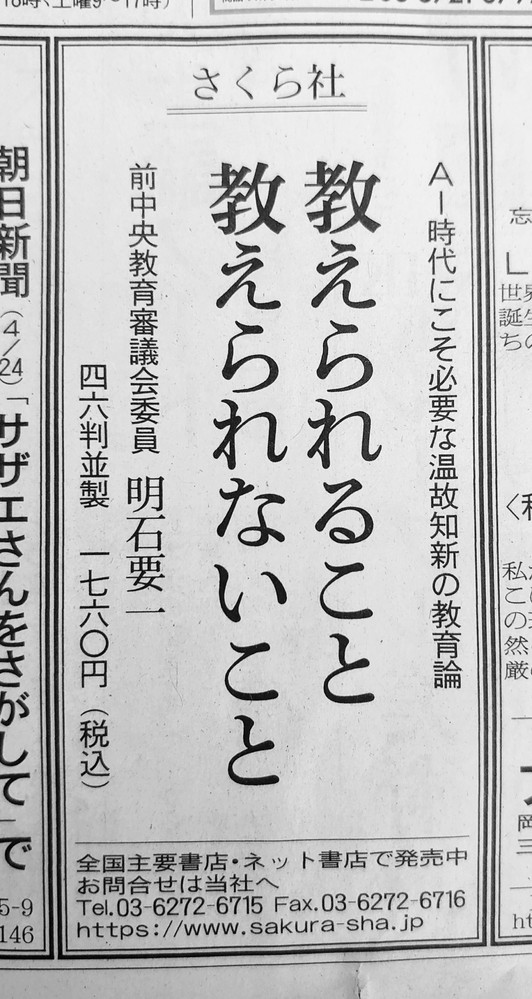 18時、土曜9〜17時)
さくら社
AI時代にこそ必要な温故知新の教育論
教えられること
教えられないこと
前中央教育審議会委員 明石要一
四六判並製 一七六〇円(税込)
全国主要書店・ネット書店で発売中
お問合せは当社へ
Tel.03-6272-6715 Fax.03-6272-6716
https://www.sakura-sha.jp
朝日新聞(4/24)「サザエさんをさがして」で
5-9
146
忘
世界
誕生
ちの
私た
この
の
然
厳
岡
三
ht